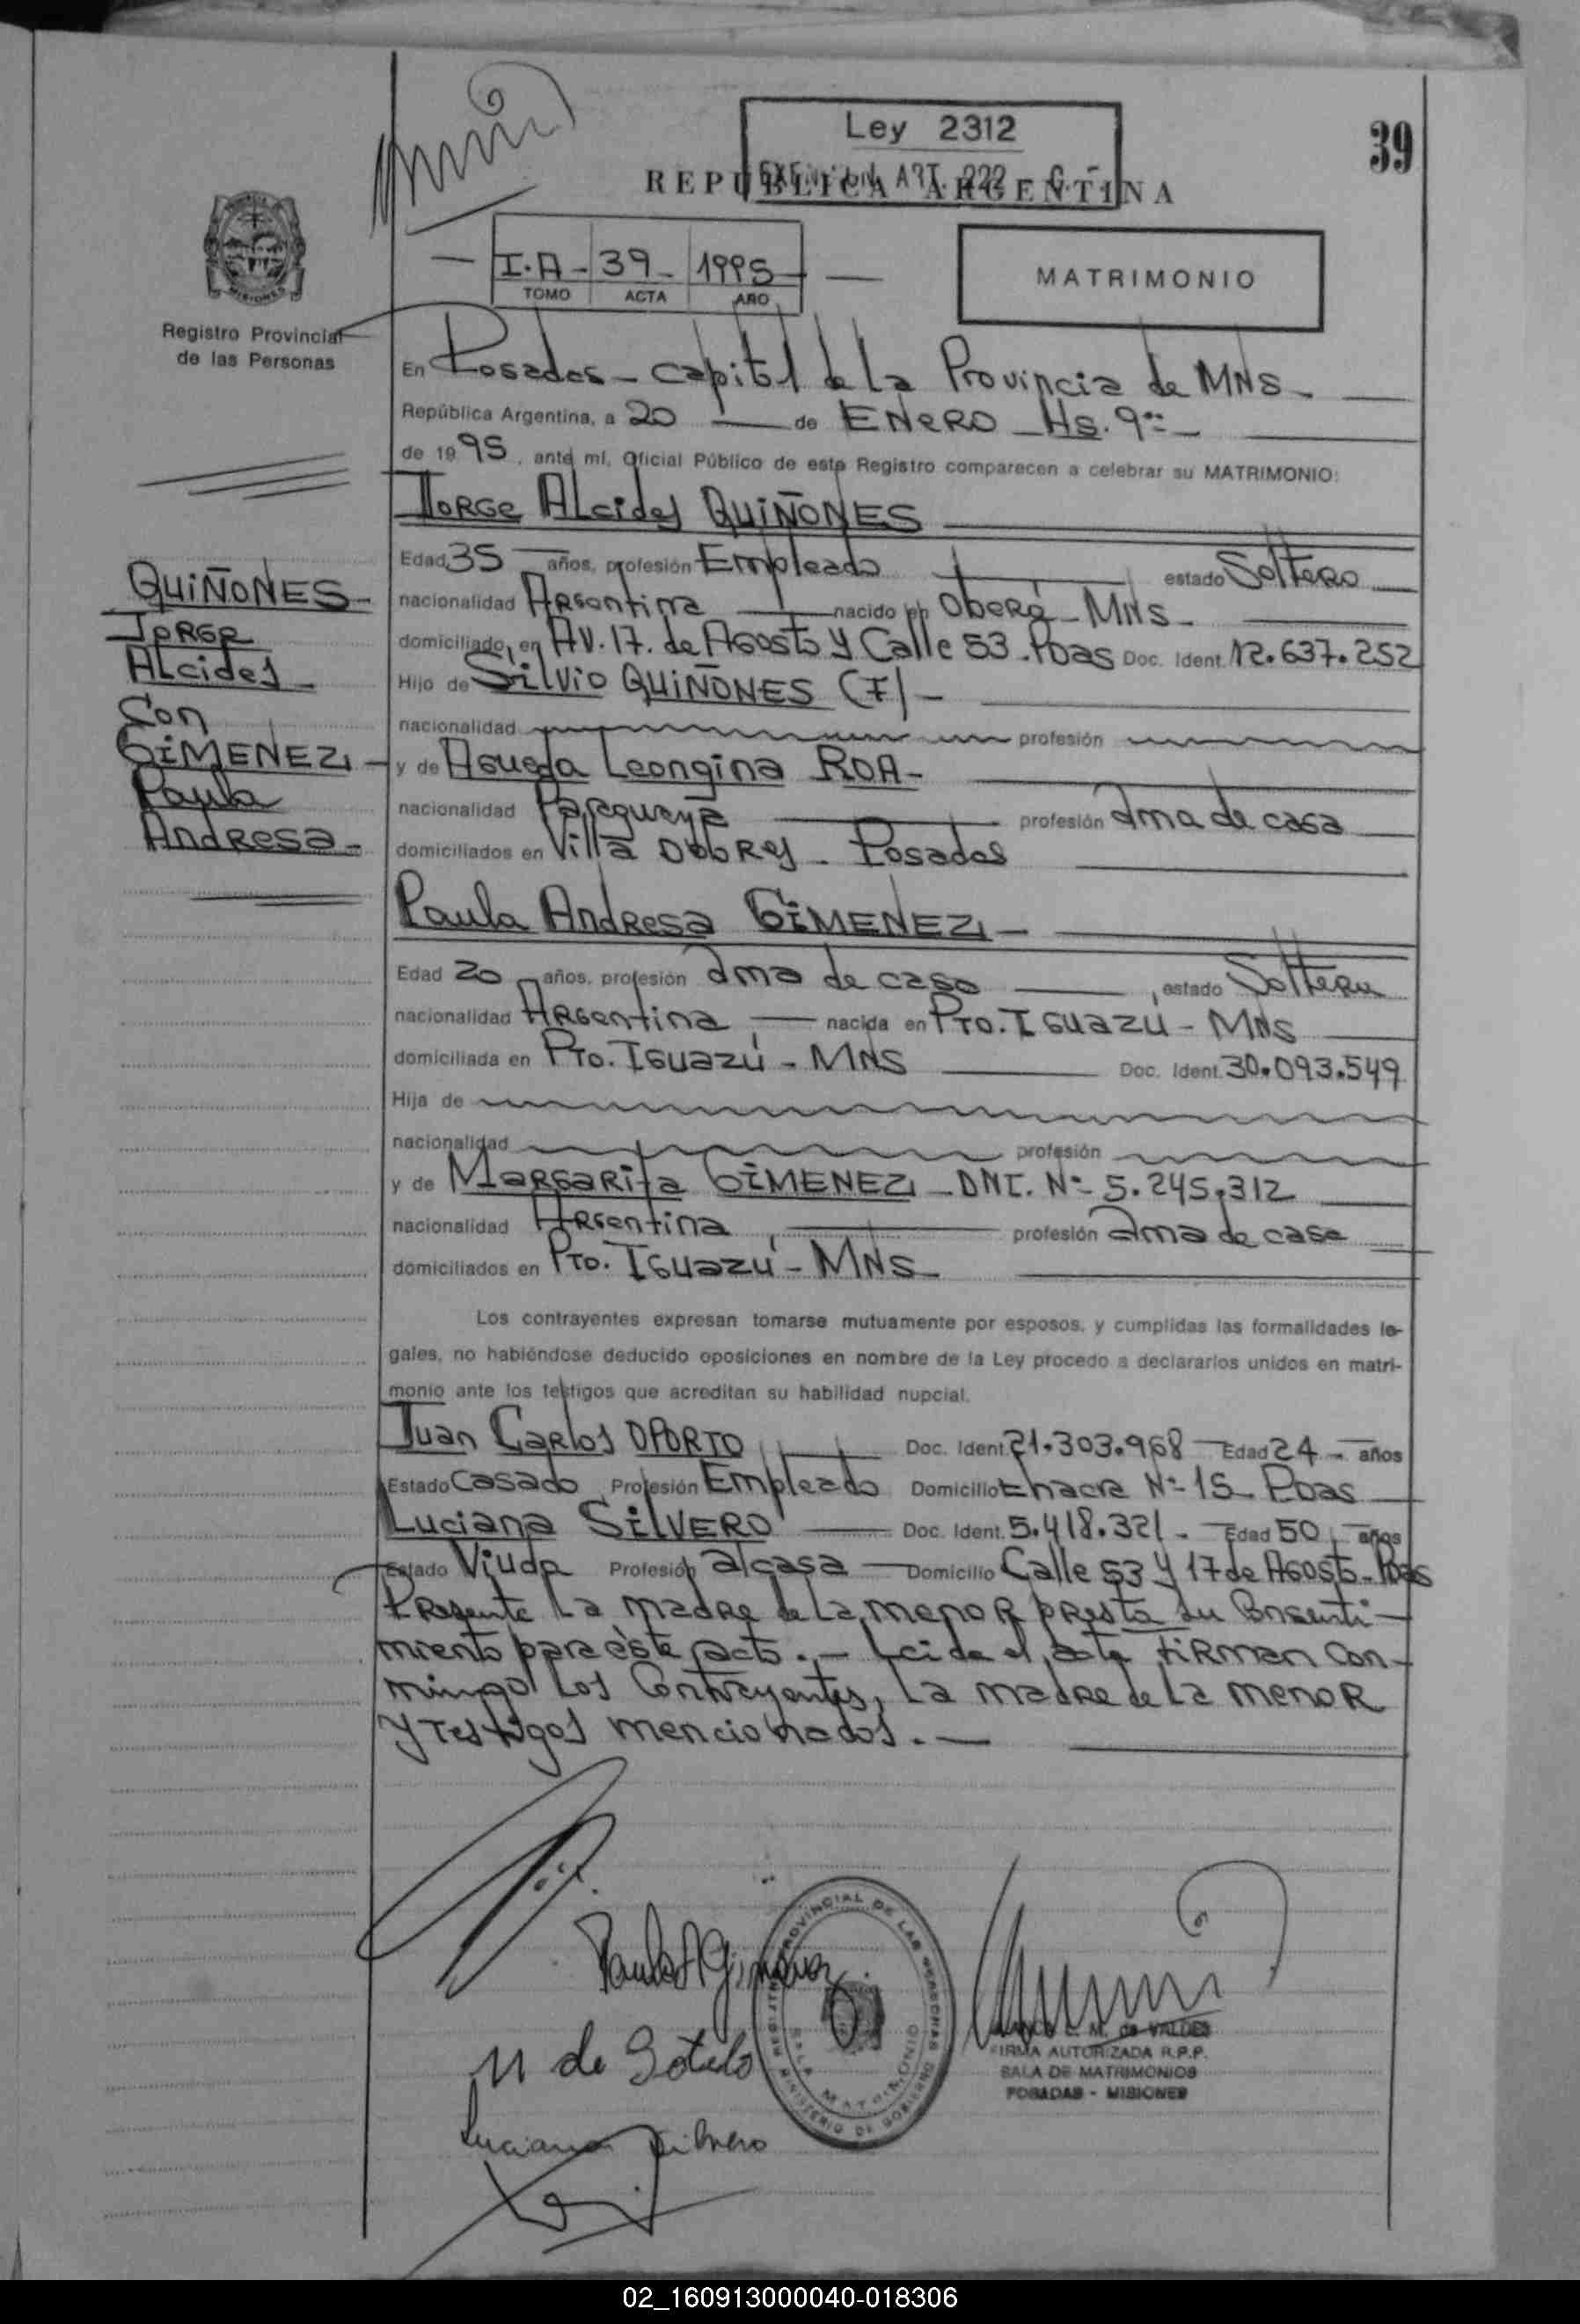 Ley 2312
39
REPUBLICA ARGENTINA
I.A - 39 - 1995
TOMO ACTA AÑO
MATRIMONIO
Registro Provincial
de las Personas
En Posadas - Capital de la Provincia de MNS -
República Argentina, a 20 de ENERO Hs. 9
de 1995, ante mí, Oficial Público de este Registro comparecen a celebrar su MATRIMONIO:
JORGE Alcides QUIÑONES
Edad 35 años, profesión Empleado estado Soltero
nacionalidad Argentina nacido en Oberá - MNS -
domiciliado en AV. 17. de Agosto y Calle 53 - Pdas Doc. Ident. 12.637.252
Hijo de Silvio QUIÑONES (F) -
nacionalidad profesión
y de Agueda Leongina ROA -
nacionalidad Paraguaya profesión ama de casa
domiciliados en Villa - Posadas
QUIÑONES -
JORGE
Alcides -
Con
GIMENEZ -
Paula
Andresa -
Paula Andresa GIMENEZ -
Edad 20 años, profesión ama de casa, estado Soltera
nacionalidad Argentina nacida en Pto. Iguazu - MNS
domiciliada en Pto. Iguazú - MNS Doc. Ident. 30.093.549
Hija de
nacionalidad profesión
y de Margarita GIMENEZ - DNI. Nº 5.245.312
nacionalidad Argentina, profesión ama de casa
domiciliados en Pto. Iguazú - MNS
Los contrayentes expresan tomarse mutuamente por esposos, y cumplidas las formalidades le-
gales, no habiéndose deducido oposiciones en nombre de la Ley procedo a declararlos unidos en matri-
monio ante los testigos que acreditan su habilidad nupcial.
Juan Carlos OPORTO Doc. Ident. 21.303.968 Edad 24 - años
Estado Casado Profesión Empleado Domicilio Chacra Nº 15 - Pdas
Luciana SILVERO Doc. Ident. 5.418.321 - Edad 50 años
Estado Viuda Profesión a/casa Domicilio Calle 53 y 17 de Agosto - Pdas
Presente la madre de la menor presta su Consenti-
miento para éste acto. - Leida el acta firman con-
migo los Contrayentes, la madre de la menor
y testigos mencionados. -
Paula A Gimenez
M de Sotelo
Luciana Silvero
REGISTRO PROVINCIAL DE LAS PERSONAS
SALA MATRIMONIO
MINISTERIO DE GOBIERNO
M. de VALDES
FIRMA AUTORIZADA R.P.P.
SALA DE MATRIMONIOS
POSADAS - MISIONES
02_160913000040-018306